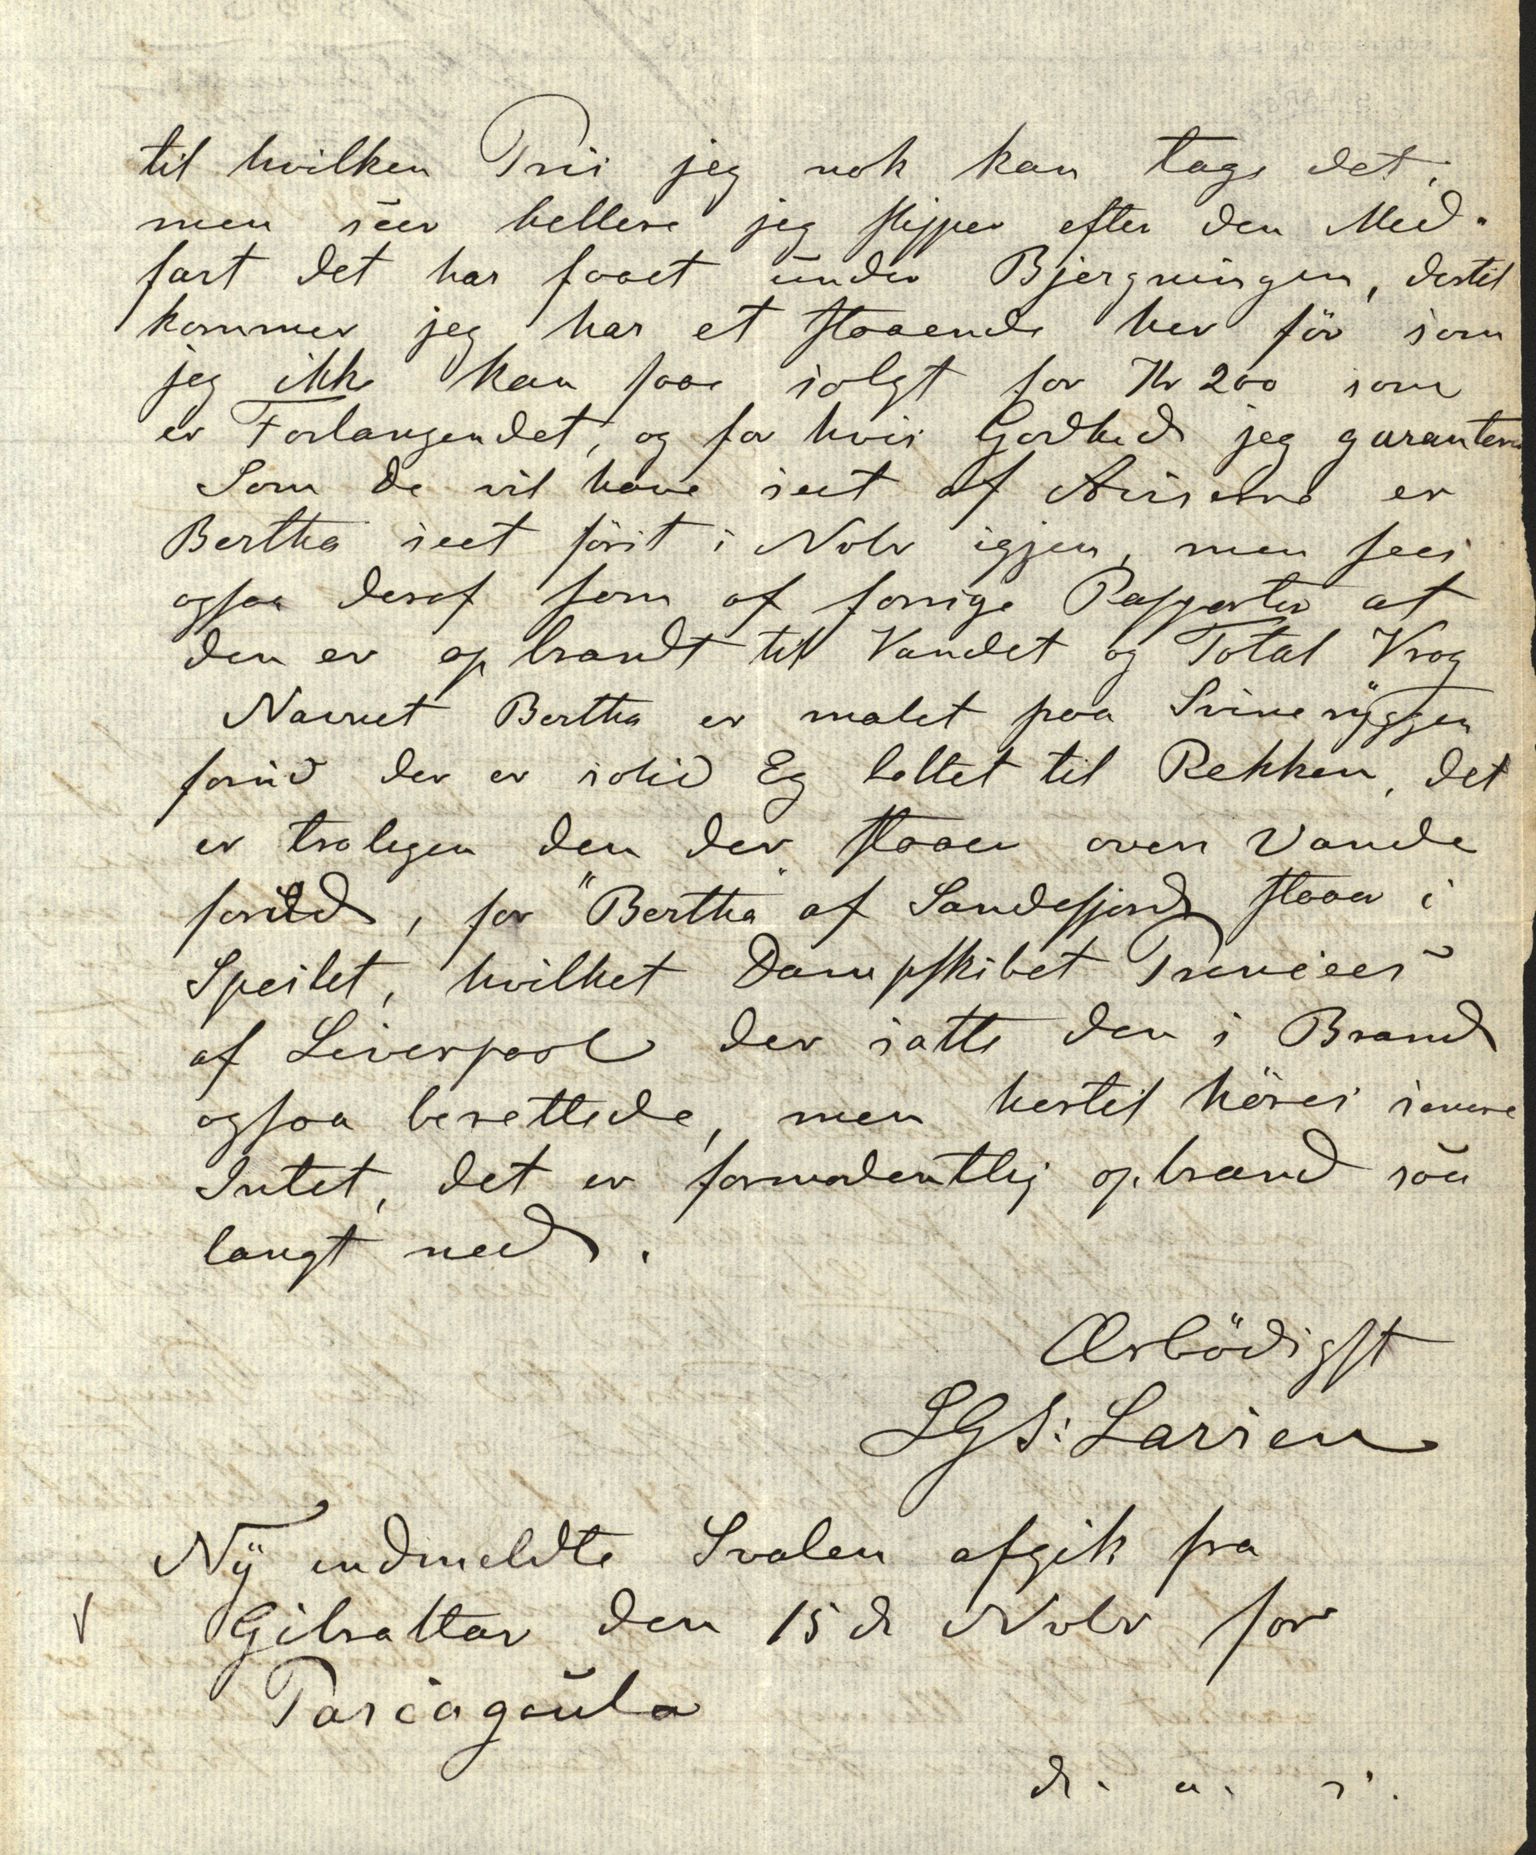 til hvilken Pris jeg nok kan tage det,
men seer hellere jeg slipper efter den Med-
fart det har faaet under Bjergningen, dertil
kommer jeg har et staaende her för som
jeg ikke kan faae solgt for Kr 200 som
er Forlangendet, og for hvis Godhed jeg garanterer
Som De vil have seet af Aviserne er
Bertha seet först i Nobr igjen, men sees
ogsaa deraf som af forrige Rapporter at
den er opbrandt til Vandet og Total Vrag
Navnet Bertha er malet paa Svineryggen
forud der er solid Eg boltet til Rekken, det
er troligen den der staaer over Vande
forud, for "Bertha" af Sandefjord staaer i
Speilet, hvilket Dampskibet
af Liverpool der satte den i Brand
ogsaa berettede, men hertil höres senere
Intet, det er formodentlig opbrand saa
langt ned.
Ærbödigst
LGS: Larsen
Ny indmeldte Svalen afgik fra
Gibraltar den 15 de Nobr for
Pascagoula
d. u. s.